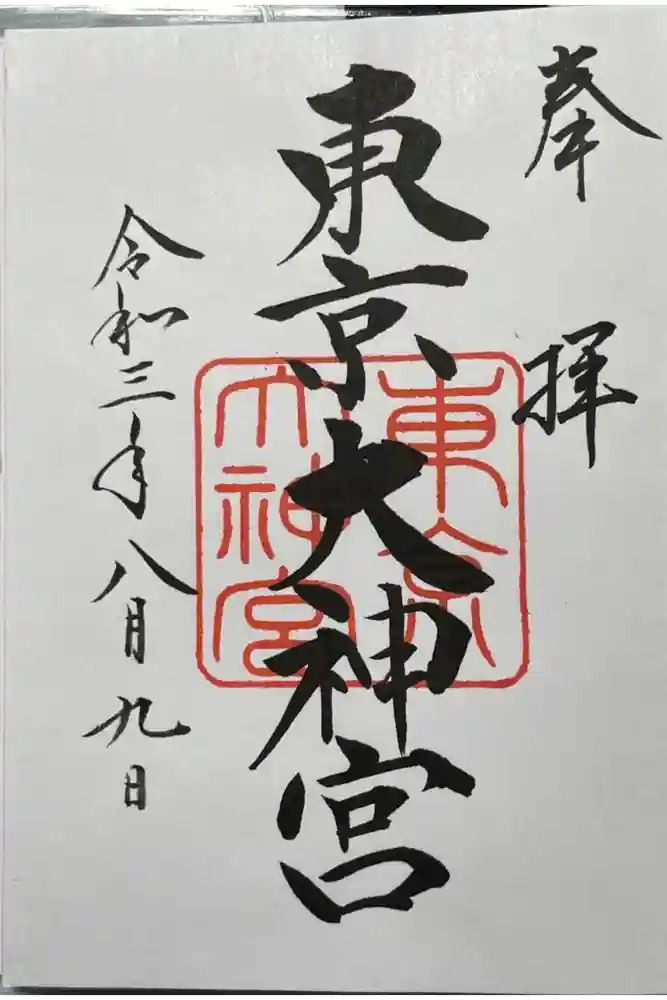 奉拝
東京大神宮
東京
大神宮
令和三年八月九日